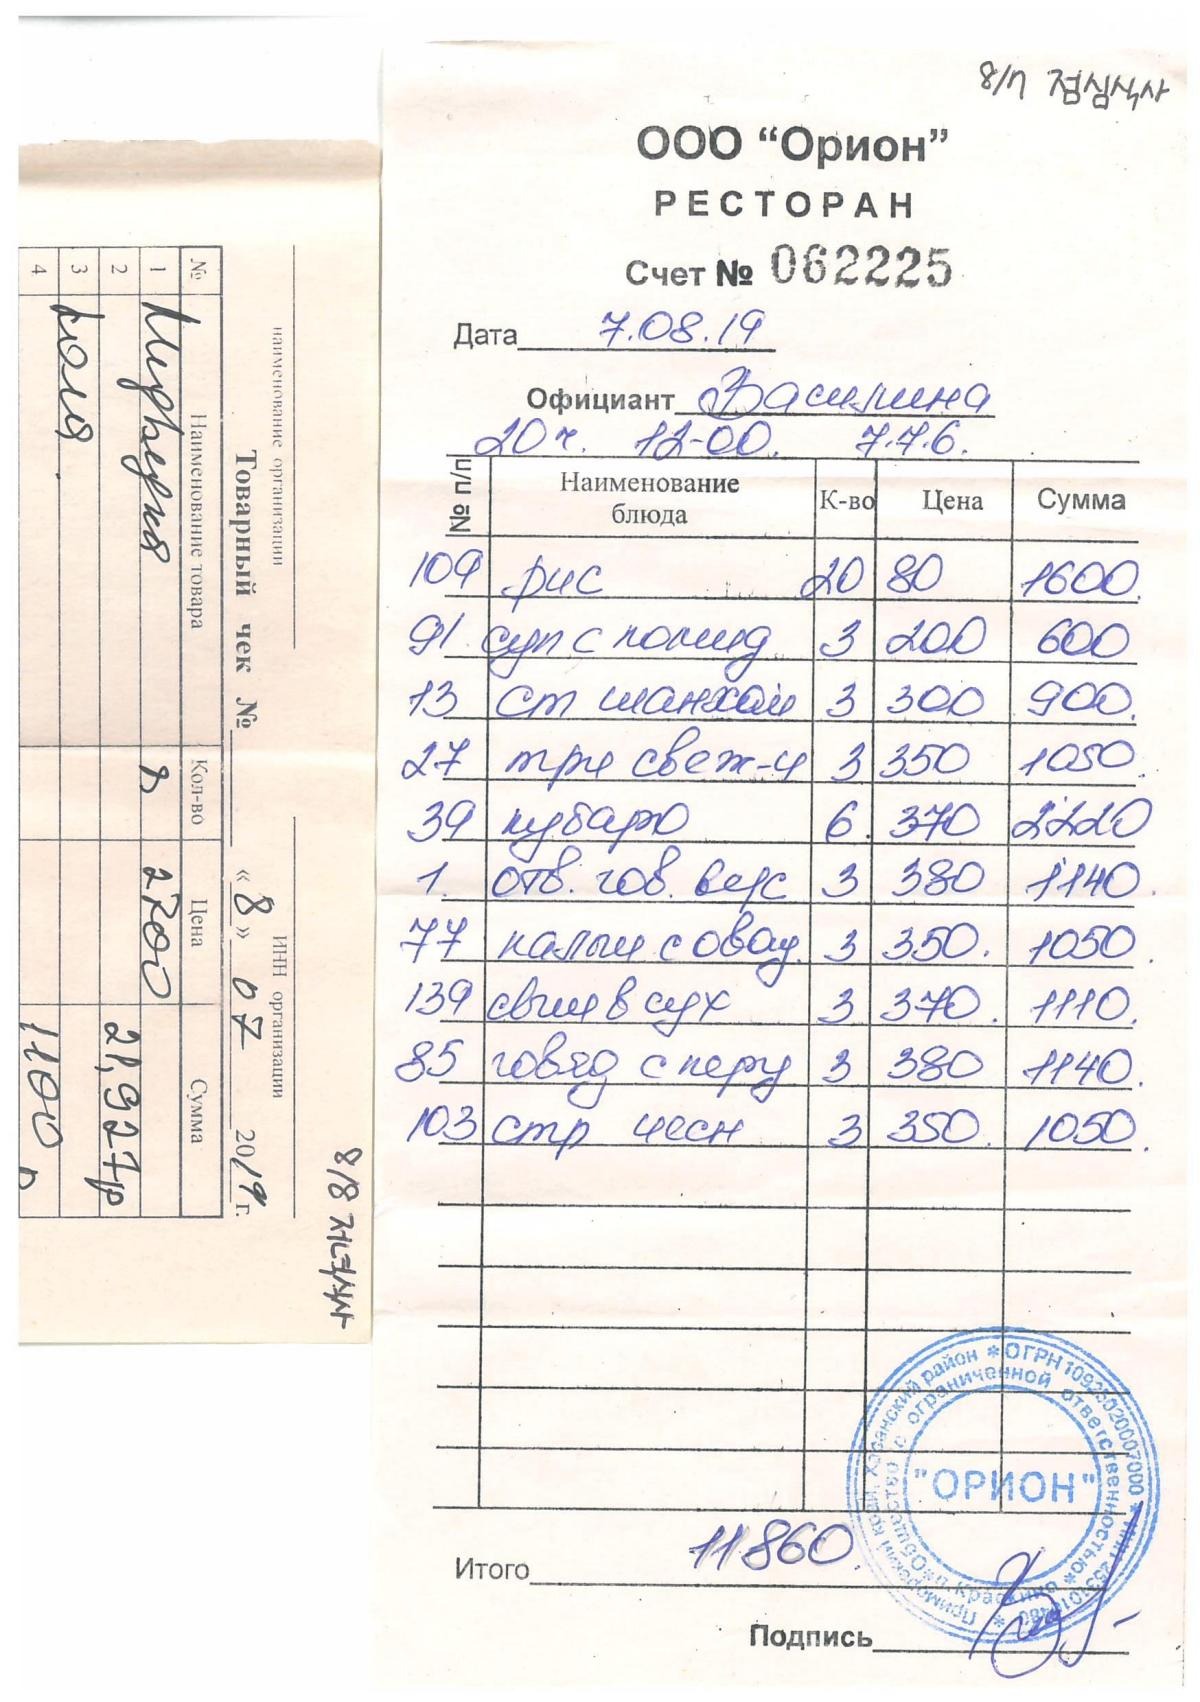 8/7 점심식사
ООО “Орион”
РЕСТОРАН
Счет № 062225
Дата 7.08.19
Официант Василина
20 ч. 12-00. 7.7.6.
№ п/п Наименование блюда К-во Цена Сумма
109 рис 20 80 1600.
91. суп с помид 3 200 600
13 ст шанхай 3 300 900.
27 три свеж-и 3 350 1050.
39 кубаро 6. 370 2220
1. отв. гов. вкус 3 380 1140.
77 кальм с овощ. 3 350. 1050.
139 свин в сух 3 370. 1110.
85 говяд с перц 3 380 1140.
103 стр чесн 3 350. 1050.
Итого 11860.
Подпись
"ОРИОН"
Приморский край, Хасанский район * ОГРН 1092502000700
Общество с ограниченной ответственностью * п. Краскино
8/8
наименование организации
ИНН организации
Товарный чек № «8» 07 2019 г.
№ Наименование товара Кол-во Цена Сумма
1 8 2700
2 21,927р
3
4 1100